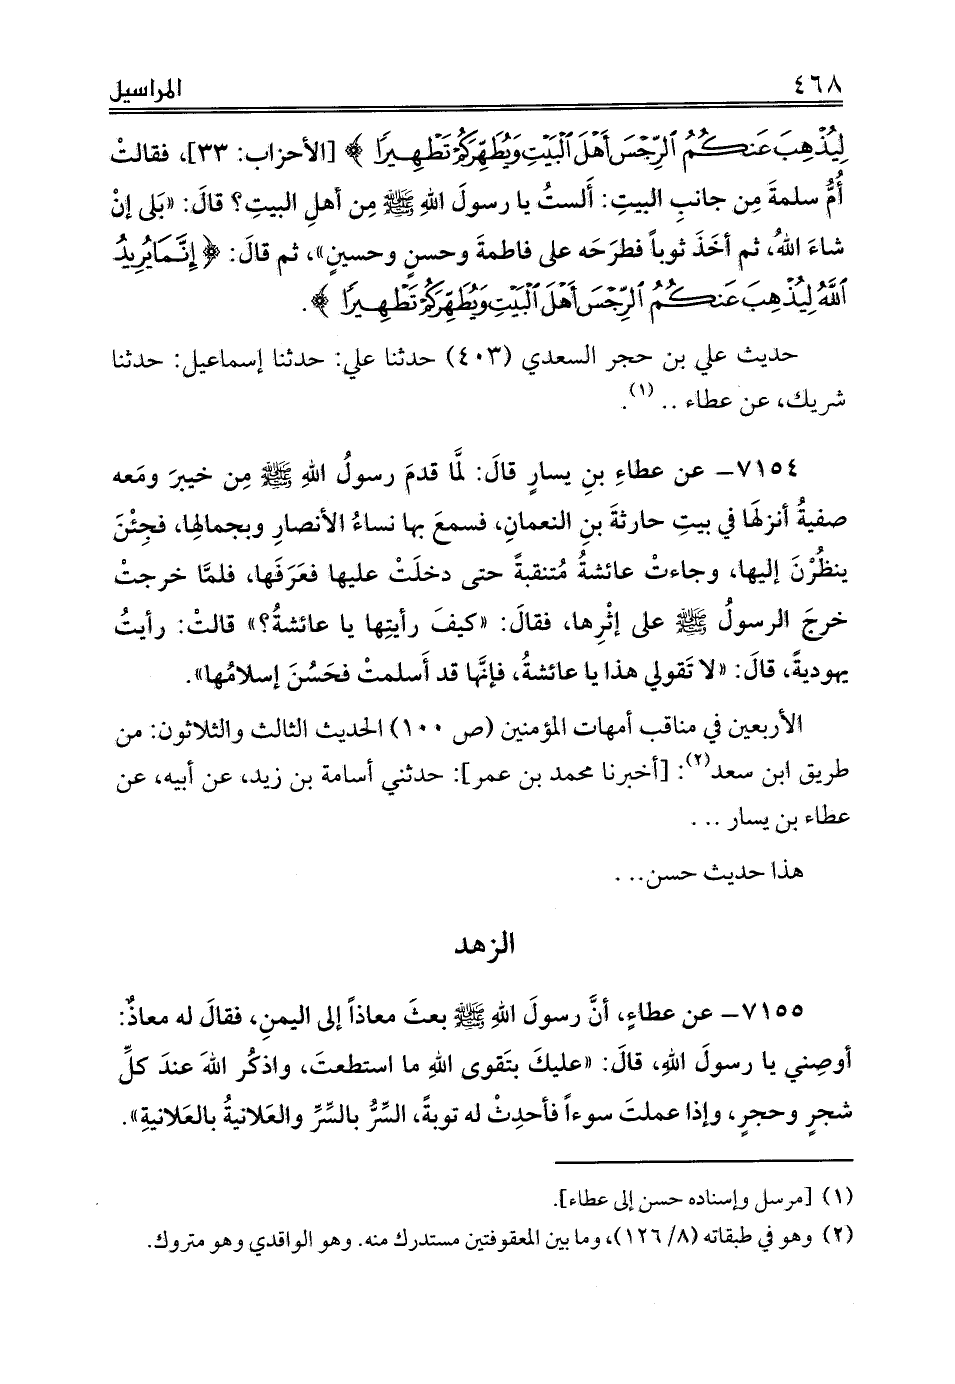 ٤٦٨
المراسيل
لِيُذْهِبَ عَنكُمُ ٱلرِّجْسَ أَهْلَ ٱلْبَيْتِ وَيُطَهِّرَكُمْ تَطْهِيرًا ﴾ [الأحزاب: ٣٣]، فقالتْ
أُمُّ سلمةَ مِن جانبِ البيتِ: أَلستُ يا رسولَ اللهِ ﷺ مِن أهلِ البيتِ؟ قالَ: «بَلى إنْ
شاءَ اللهُ، ثم أَخَذَ ثوباً فطرَحَه على فاطمةَ وحسنٍ وحسينٍ»، ثم قالَ: ﴿ إِنَّمَا يُرِيدُ
ٱللَّهُ لِيُذْهِبَ عَنكُمُ ٱلرِّجْسَ أَهْلَ ٱلْبَيْتِ وَيُطَهِّرَكُمْ تَطْهِيرًا ﴾.
حديث علي بن حجر السعدي (٤٠٣) حدثنا علي: حدثنا إسماعيل: حدثنا
شريك، عن عطاء .. (١).
٧١٥٤ـ عن عطاءِ بنِ يسارٍ قالَ: لمَّا قدمَ رسولُ اللهِ ﷺ مِن خيبرَ ومَعه
صفيةُ أنزلهَا في بيتِ حارثةَ بنِ النعمانِ، فسمعَ بها نساءُ الأنصارِ وبجمالِها، فجِئْنَ
ينظُرْنَ إليها، وجاءتْ عائشةُ مُتنقبةً حتى دخلَتْ عليها فعَرَفَها، فلمَّا خرجتْ
خرجَ الرسولُ ﷺ على إثْرِها، فقالَ: «كيفَ رأيتِها يا عائشةُ؟» قالتْ: رأيتُ
يهوديةً، قالَ: «لا تَقولي هذا يا عائشةُ، فإنَّها قد أَسلمتْ فحَسُنَ إسلامُها».
الأربعين في مناقب أمهات المؤمنين (ص ١٠٠) الحديث الثالث والثلاثون: من
طريق ابن سعد(٢): [أخبرنا محمد بن عمر]: حدثني أسامة بن زيد، عن أبيه، عن
عطاء بن يسار ...
هذا حديث حسن...
الزهد
٧١٥٥ـ عن عطاءٍ، أنَّ رسولَ اللهِ ﷺ بعثَ معاذاً إلى اليمنِ، فقالَ له معاذٌ:
أوصِني يا رسولَ اللهِ، قالَ: «عليكَ بتَقوى اللهِ ما استطعتَ، واذكُر اللهَ عندَ كلِّ
شجرٍ وحجرٍ، وإذا عملتَ سوءاً فأَحدِثْ له توبةً، السرُّ بالسِّرِّ والعَلانيةُ بالعَلانيةِ».
(١) [مرسل وإسناده حسن إلى عطاء].
(٢) وهو في طبقاته (٨/ ١٢٦)، وما بين المعقوفتين مستدرك منه. وهو الواقدي وهو متروك.